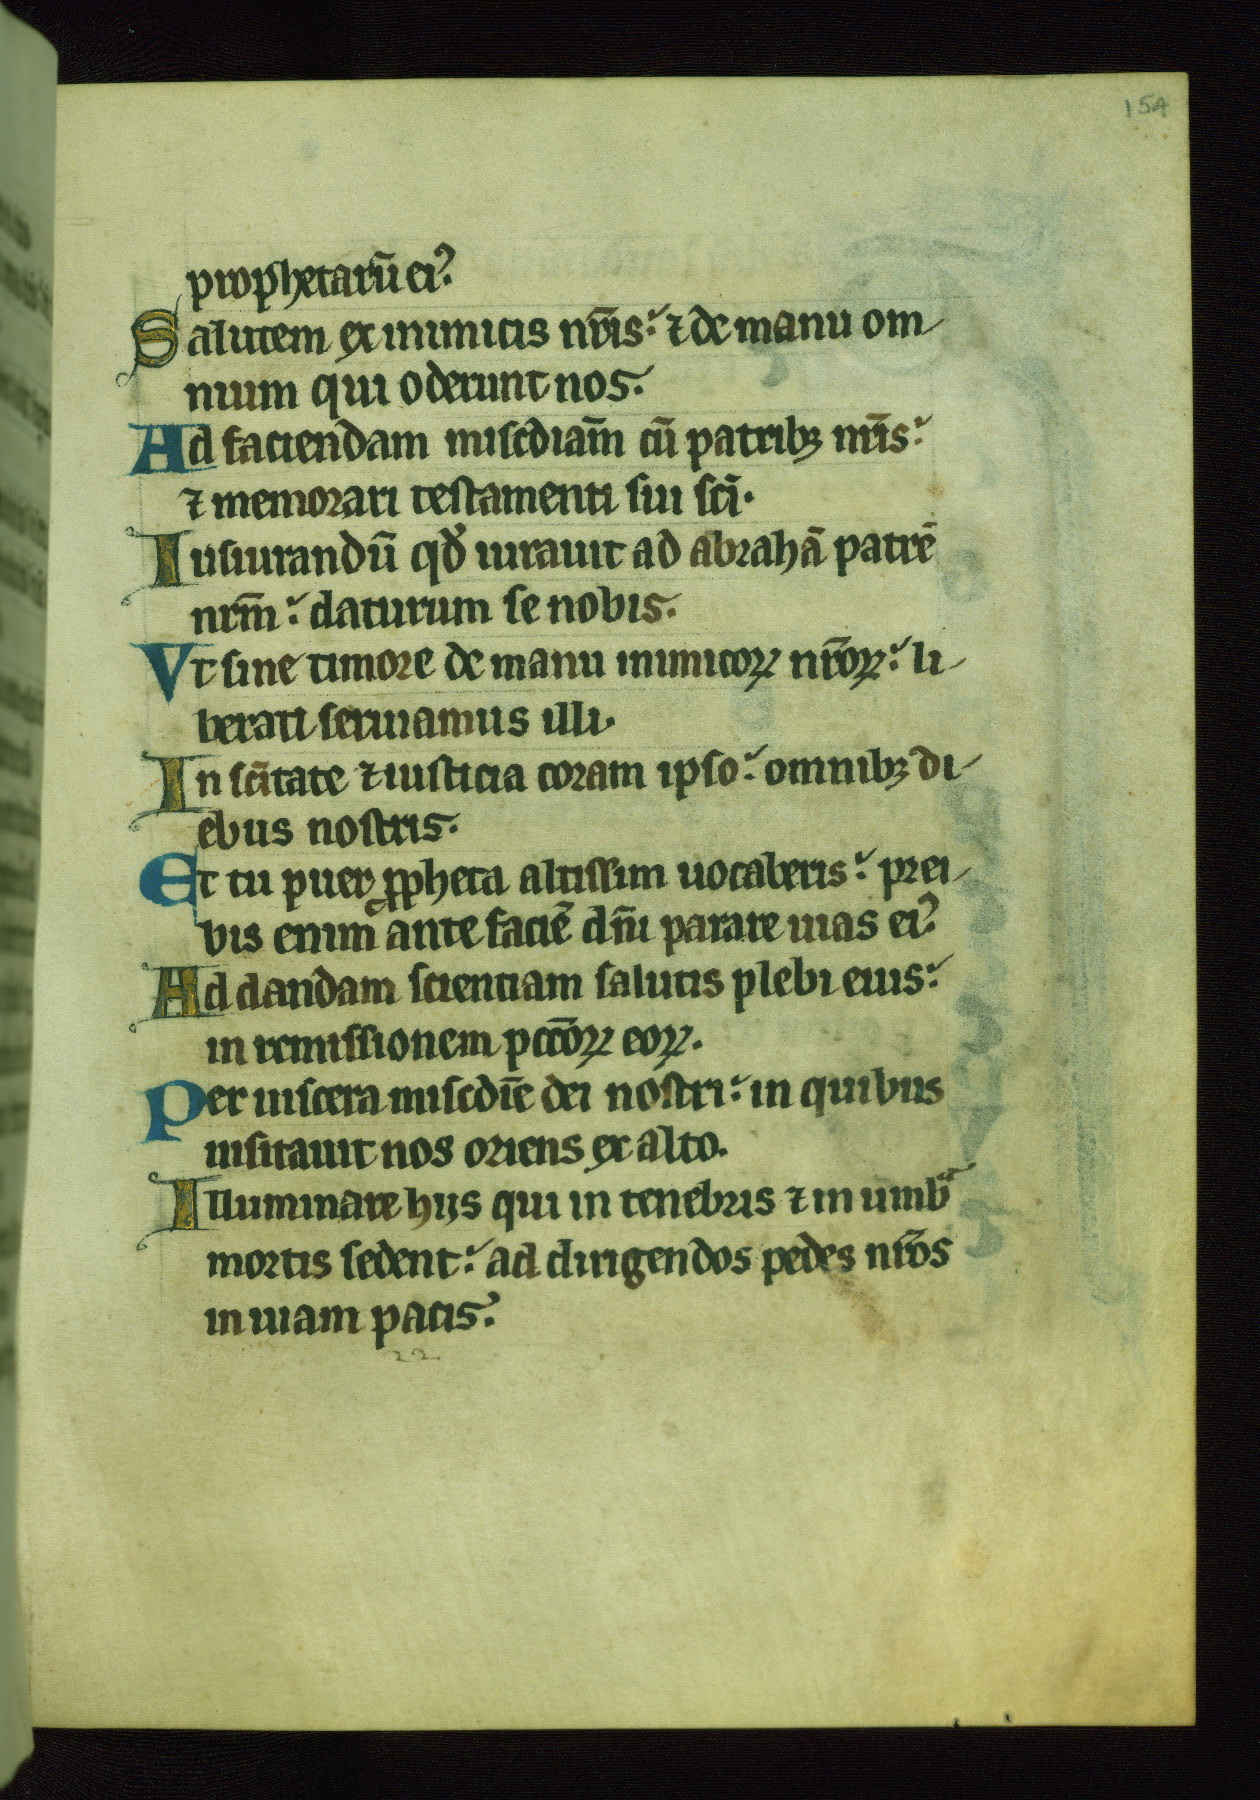 154
prophetarũ eiꝰ.
Salutem ex inimicis nr̃is: ⁊ de manu om
nium qui oderunt nos.
Ad faciendam miscd̓iam̃ cũ patribꝫ nr̃is:
⁊ memorari testamenti sui sc̃i.
Iusiurandũ qd̓ iurauit ad abrahã patrẽ
nrm̃: daturum se nobis.
Vt sine timore de manu inimicoꝝ nr̃oꝝ: li
berati seruiamus illi.
In sc̃itate ⁊ iusticia coram ipso: omnibꝫ di
ebus nostris.
Et tu puer ꝓpheta altissim uocaberis: prei
bis enim ante faciẽ dñi parare uias eiꝰ.
Ad dandam scientiam salutis plebi eius:
in remissionem pcc̃oꝝ eoꝝ.
Per uiscera miscdĩe dei nostri: in quibus
uisitauit nos oriens ex alto.
Illuminare hijs qui in tenebris ⁊ in umbᵃ
mortis sedent: ad dirigendos pedes nr̃os
in uiam pacis.
22